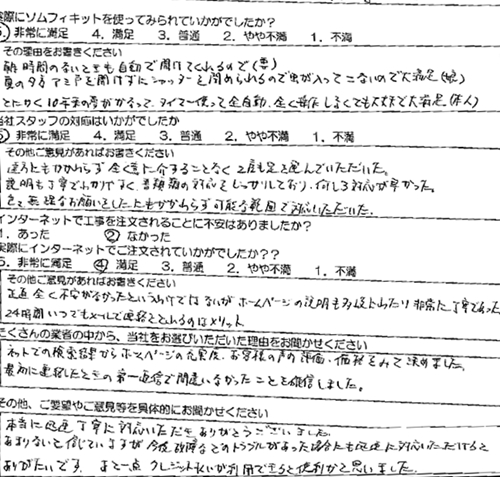 実際にソムフィキットを使ってみられていかがでしたか?
5. 非常に満足 4. 満足 3. 普通 2. やや不満 1. 不満
その理由をお書きください
朝時間のないときも自動で開けてくれるので(妻)
夏の夕方アミ戸を開けずにシャッターを閉められるので虫が入ってこないので大満足(娘)
とにかく10年来の夢がかなって、タイマー使って全自動、全く操作しなくても大丈夫で大満足。(本人)
当社スタッフの対応はいかがでしたか
5) 非常に満足 4. 満足 3. 普通 2. やや不満 1. 不満
その他ご意見があればお書きください
遠方にもかかわらず全く意に介することなく2度も足を運んでいただいた。
説明も丁寧でわかりやすく、書類類の対応もしっかりしており、何しろ対応が早かった。
色々無理なお願いをしたにもかかわらず可能な範囲で対応いただいた。
インターネットで工事を注文されることに不安はありましたか?
1. あった ② なかった
実際にインターネットでご注文されていかがでしたか??
5. 非常に満足 ④ 満足 3. 普通 2. やや不満 1. 不満
その他ご意見があればお書きください
正直全く不安がなかったというわけではないがホームページの説明も 非常に丁寧であった
24時間いつでもメールで連絡をとれるのはメリット
たくさんの業者の中から、当社をお選びいただいた理由をお聞かせください
ネットでの検索結果からホームページの充実度、お客様の声の評価・価格をみて決めました。
最初に連絡したときの第一返信で間違いなかったことを確信しました。
その他、ご要望やご意見等を具体的にお聞かせください
本当に迅速丁寧に対応いただきありがとうございました。
あまりないと信じていますが今後故障などのトラブルがあった場合にも迅速に対応いただけると
ありがたいです。 あと一点クレジット払いが利用できると便利かと思いました。